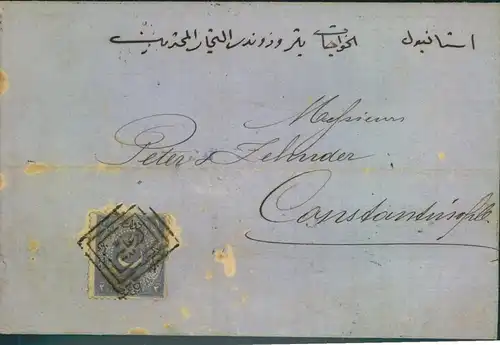 استانبول الخواجات پترو زوندر التجار المحترمين
Messieurs
Peter & Zehnder
Constantinople